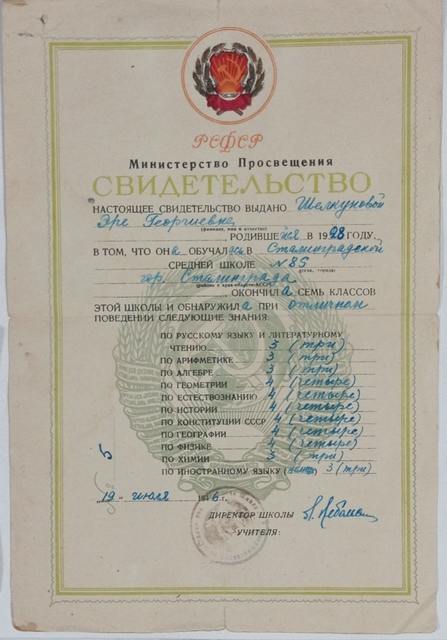 РСФСР
Министерство Просвещения
СВИДЕТЕЛЬСТВО
НАСТОЯЩЕЕ СВИДЕТЕЛЬСТВО ВЫДАНО Шелкуновой
Эре Георгиевне
(фамилия, имя и отчество)
, РОДИВШЕЙСЯ В 1928 ГОДУ,
В ТОМ, ЧТО ОНА ОБУЧАЛАСЬ В Сталинградской
СРЕДНЕЙ ШКОЛЕ №85
гор. Сталинграда
, ОКОНЧИЛА СЕМЬ КЛАССОВ
ЭТОЙ ШКОЛЫ И ОБНАРУЖИЛА ПРИ отличном
ПОВЕДЕНИИ СЛЕДУЮЩИЕ ЗНАНИЯ:
ПО РУССКОМУ ЯЗЫКУ И ЛИТЕРАТУРНОМУ
ЧТЕНИЮ 3 (три)
ПО АРИФМЕТИКЕ 3 (три)
ПО АЛГЕБРЕ 3 (три)
ПО ГЕОМЕТРИИ 4 (четыре)
ПО ЕСТЕСТВОЗНАНИЮ 4 (четыре)
ПО ИСТОРИИ 4 (четыре)
ПО КОНСТИТУЦИИ СССР 4 (четыре)
ПО ГЕОГРАФИИ 4 (четыре)
ПО ФИЗИКЕ 4 (четыре)
ПО ХИМИИ 3 (три)
ПО ИНОСТРАННОМУ ЯЗЫКУ 3 (три)
5
19 - июля 1946 г.
ДИРЕКТОР ШКОЛЫ
УЧИТЕЛЯ: